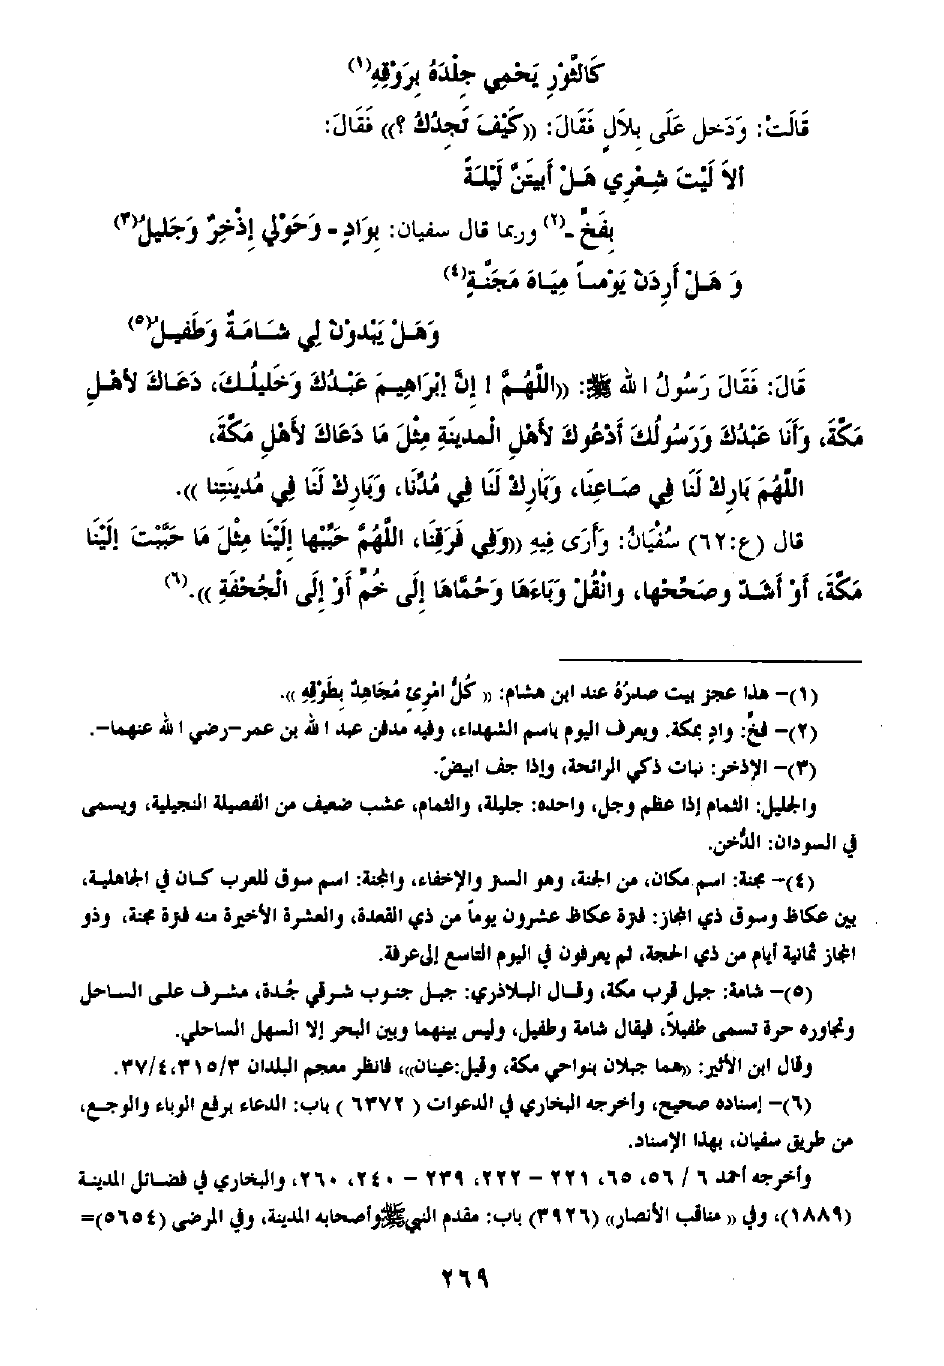 كَالثَّوْرِ يَحْمِي جِلْدَهُ بِرَوْقِهِ(١)
قَالَتْ: وَدَخل عَلَى بِلَالٍ فَقَالَ: ((كَيْفَ تَجِدُكَ ؟)) فَقَالَ:
أَلَا لَيْتَ شِعْرِي هَلْ أَبِيتَنَّ لَيْلَةً
بِفَخٍّ -(٢) وربما قال سفيان: بِوَادٍ - وَحَوْلِي إِذْخِرٌ وَجَلِيلُ(٣)
وَ هَلْ أَرِدَنْ يَوْماً مِيَاهَ مَجَنَّةٍ(٤)
وَهَلْ يَبْدُوَنْ لِي شَامَةٌ وَطَفِيلُ(٥)
قَالَ: فَقَالَ رَسُولُ الله ﷺ: ((اللَّهُمَّ ! إِنَّ إِبْرَاهِيمَ عَبْدُكَ وَخَلِيلُكَ، دَعَاكَ لأَهْلِ
مَكَّةَ، وَأَنَا عَبْدُكَ وَرَسُولُكَ أَدْعُوكَ لأَهْلِ الْمدينَةِ مِثْلَ مَا دَعَاكَ لأَهْلِ مَكَّةَ،
اللَّهُمَّ بَارِكْ لَنَا فِي صَاعِنَا، وَبَارِكْ لَنَا فِي مُدِّنَا، وَبَارِكْ لَنَا فِي مَدِينَتِنَا )).
قال (ع:٦٢) سُفْيَانُ: وَأَرَى فِيهِ ((وَفِي فَرَقِنَا، اللَّهُمَّ حَبِّبْهَا إِلَيْنَا مِثْلَ مَا حَبَّبْتَ إِلَيْنَا
مَكَّةَ، أَوْ أَشَدَّ وصَحِّحْهَا، وانْقُلْ وَبَاءَهَا وَحُمَّاهَا إِلَى خُمٍّ أَوْ إِلَى الْجُحْفَةِ )).(٦)
(١)- هذا عجز بيت صدرُهُ عند ابن هشام: (( كُلُّ امْرِئٍ مُجَاهِدٌ بِطَوْقِهِ )).
(٢)- فخّ: وادٍ بمكة. ويعرف اليوم باسم الشهداء، وفيه مدفن عبد الله بن عمر-رضي الله عنهما-.
(٣)- الإذخر: نبات ذكي الرائحة، وإذا جف ابيضّ.
والجليل: الثمام إذا عظم وجل، واحده: جليلة، والثمام، عشب ضعيف من الفصيلة النجيلية، ويسمى
في السودان: الدُّخن.
(٤)- مجنة: اسم مكان، من الجنة، وهو الستر والإخفاء، والمجنة: اسم سوق للعرب كان في الجاهلية،
بين عكاظ وسوق ذي المجاز: فترة عكاظ عشرون يوماً من ذي القعدة، والعشرة الأخيرة منه فترة مجنة، وذو
المجاز ثمانية أيام من ذي الحجة، ثم يعرفون في اليوم التاسع إلى عرفة.
(٥)- شامة: جبل قرب مكة، وقال البلاذري: جبل جنوب شرقي جُدة، مشرف على الساحل
وتجاوره حرة تسمى طفيلاً، فيقال شامة وطفيل، وليس بينهما وبين البحر إلا السهل الساحلي.
وقال ابن الأثير: ((هما جبلان بنواحي مكة، وقيل:عينان))، فانظر معجم البلدان ٣١٥/٣، ٣٧/٤.
(٦)- إسناده صحيح، وأخرجه البخاري في الدعوات ( ٦٣٧٢ ) باب: الدعاء برفع الوباء والوجع،
من طريق سفيان، بهذا الإسناد.
وأخرجه أحمد ٦ / ٥٦، ٦٥، ٢٢١ - ٢٢٢، ٢٣٩ - ٢٤٠، ٢٦٠، والبخاري في فضائل المدينة
(١٨٨٩)، وفي (( مناقب الأنصار)) (٣٩٢٦) باب: مقدم النبي ﷺ وأصحابه المدينة، وفي المرضى (٥٦٥٤)=
٢٦٩